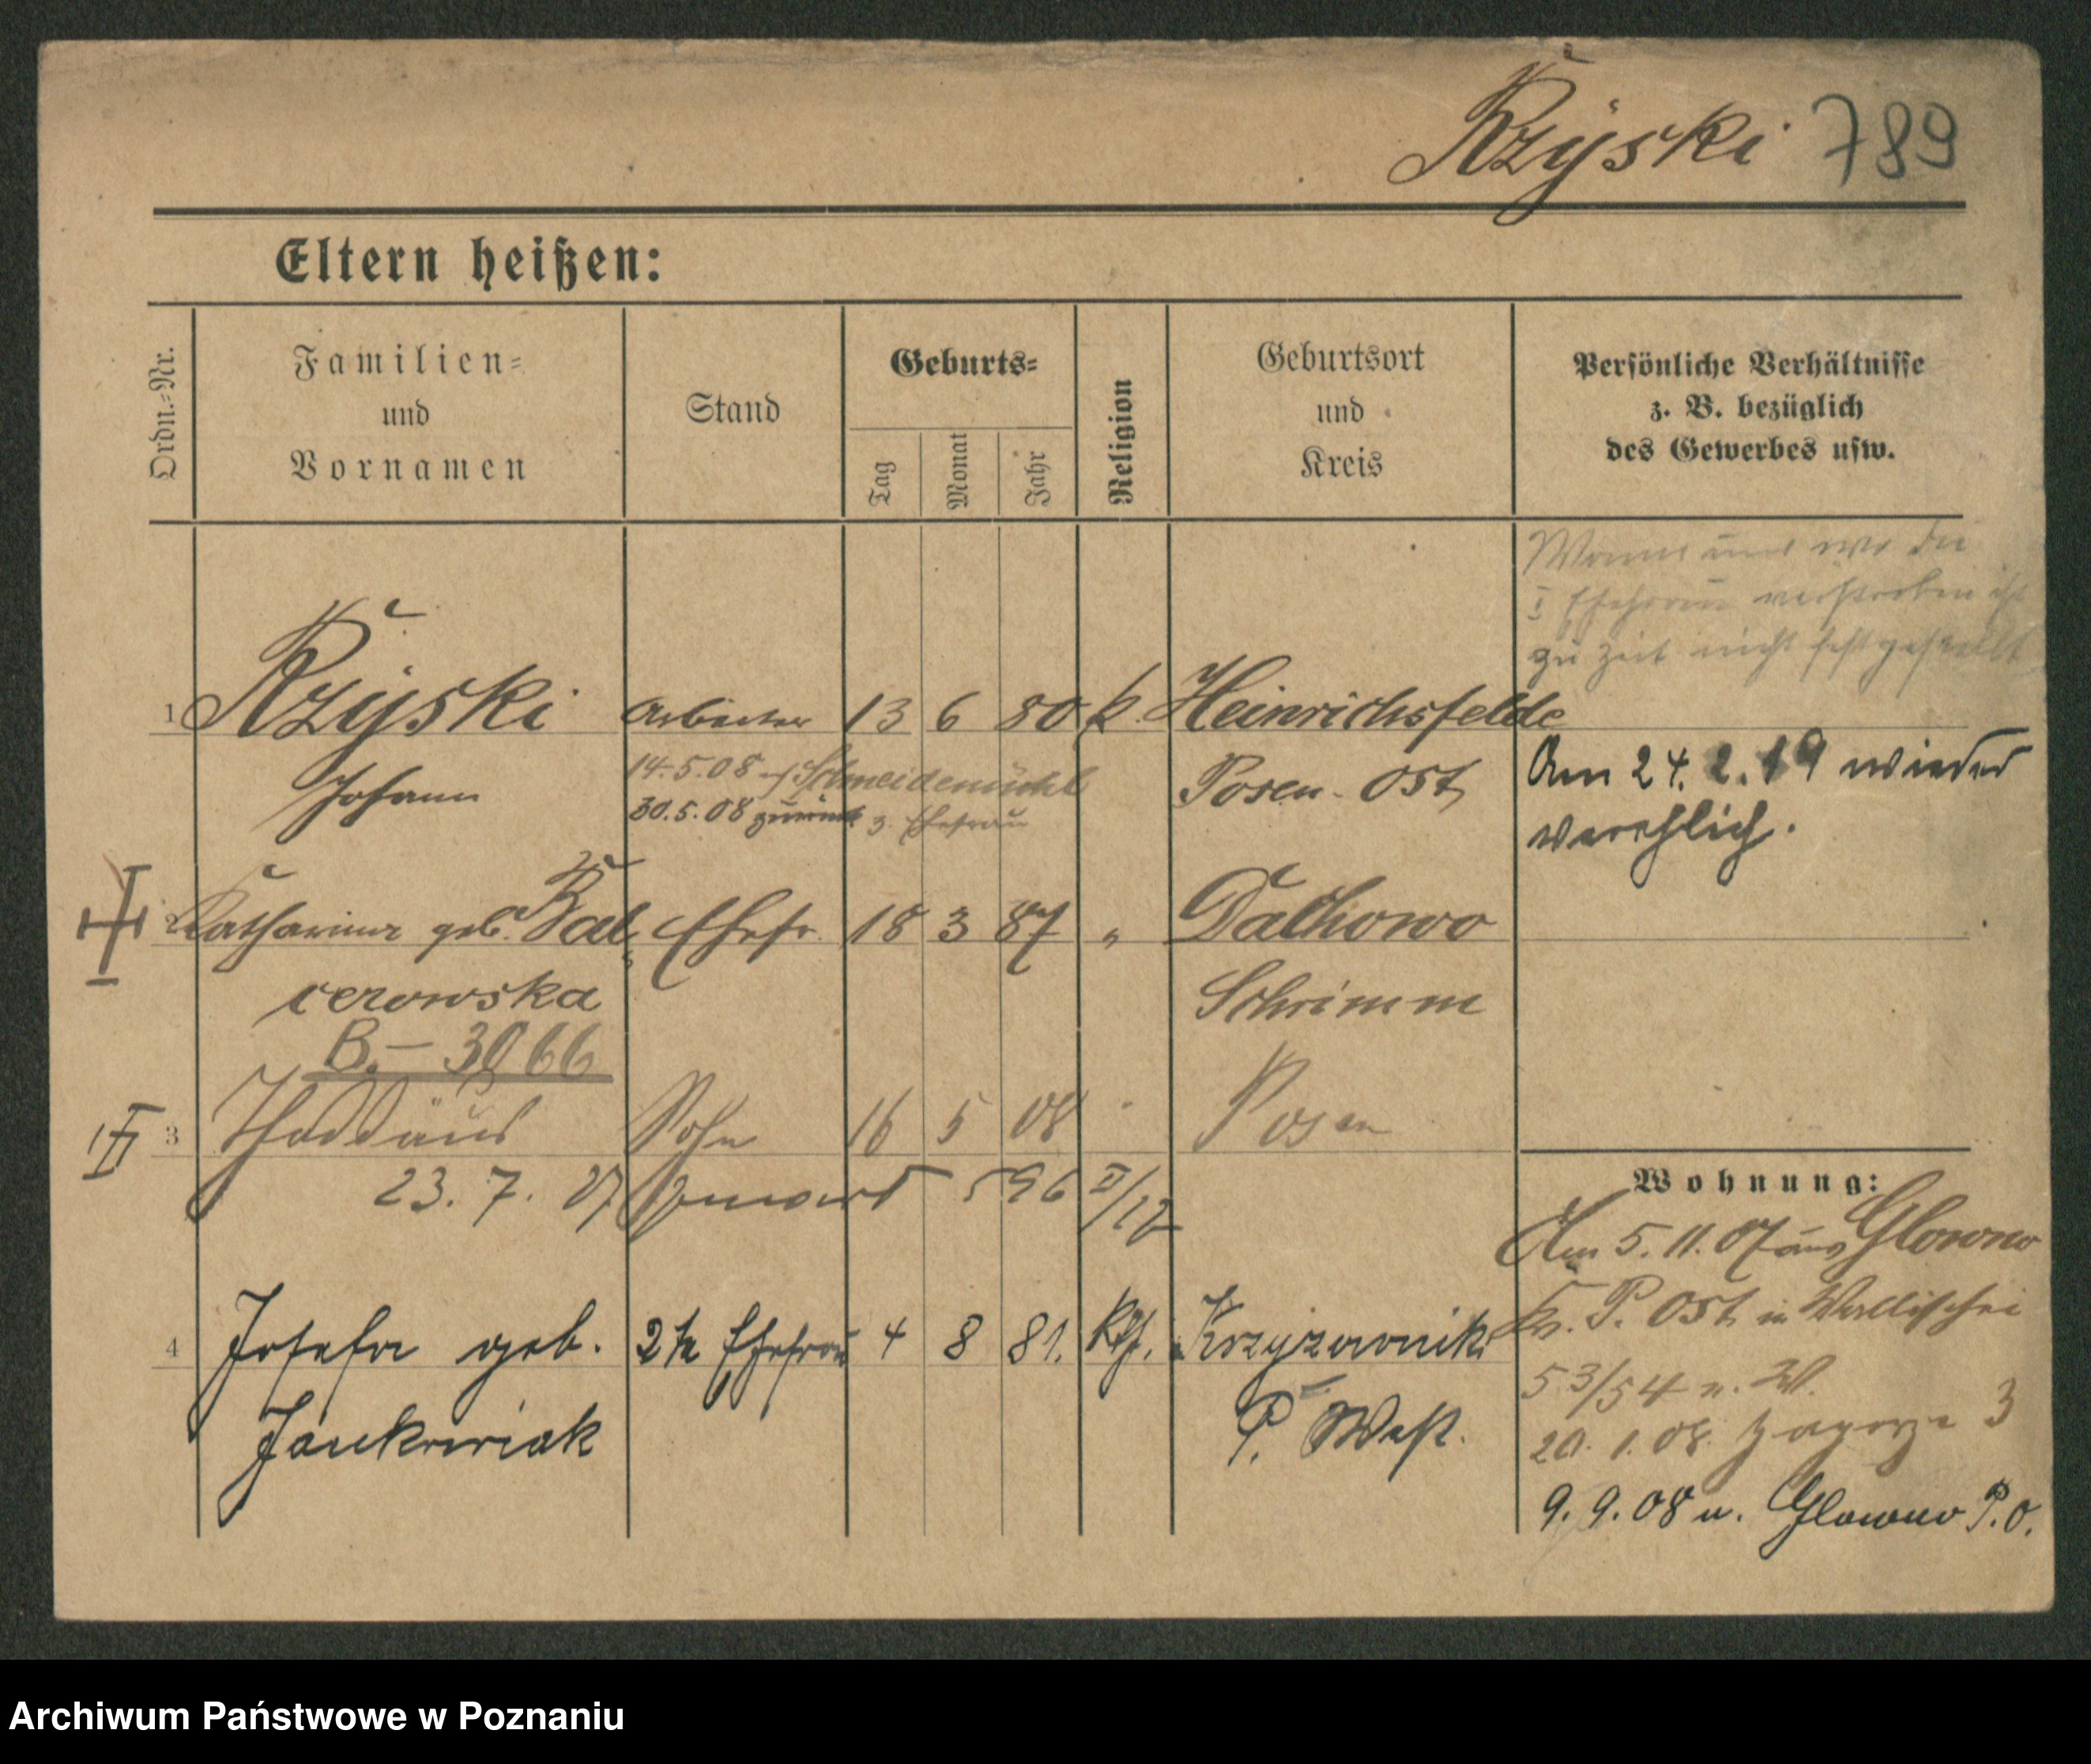 Rzyski 789
Eltern heißen:
Ordn.-Nr.
Familien=
und
Vornamen
Stand
Geburts=
Tag
Monat
Jahr
Religion
Geburtsort
und
Kreis
Persönliche Verhältnisse
z. B. bezüglich
des Gewerbes usw.
Wann und wo die
I Ehefrau verstorben ist
zu Zeit nicht festgestellt
1 Rzyski Arbeiter 13 6 80 k. Heinrichsfelde
Johann
14.5.08 Schneidemühl
30.5.08 zurück z. Ehefrau
Posen-Ost
Am 24. 2. 19 wieder
verehlich.
2 Katharina geb. Bal Ehefr. 18 3 87 " Dachowo
cerowska
Schrimm
B.- 3066
3 Thaddäus Sohn 16 5 08 Posen
23. 7. 07 596 II/12
4 Josefa geb. 2te Ehefrau 4 8 81. kth. Krzyzownik
Jankowiak
P. West.
Wohnung:
Am 5. 11. 07 aus Glowno
Kr. P. Ost in Wallischei
53/54 n. W.
20. 1. 08. Zagorze 3
9. 9. 08 n. Glowno P.O.
Archiwum Państwowe w Poznaniu